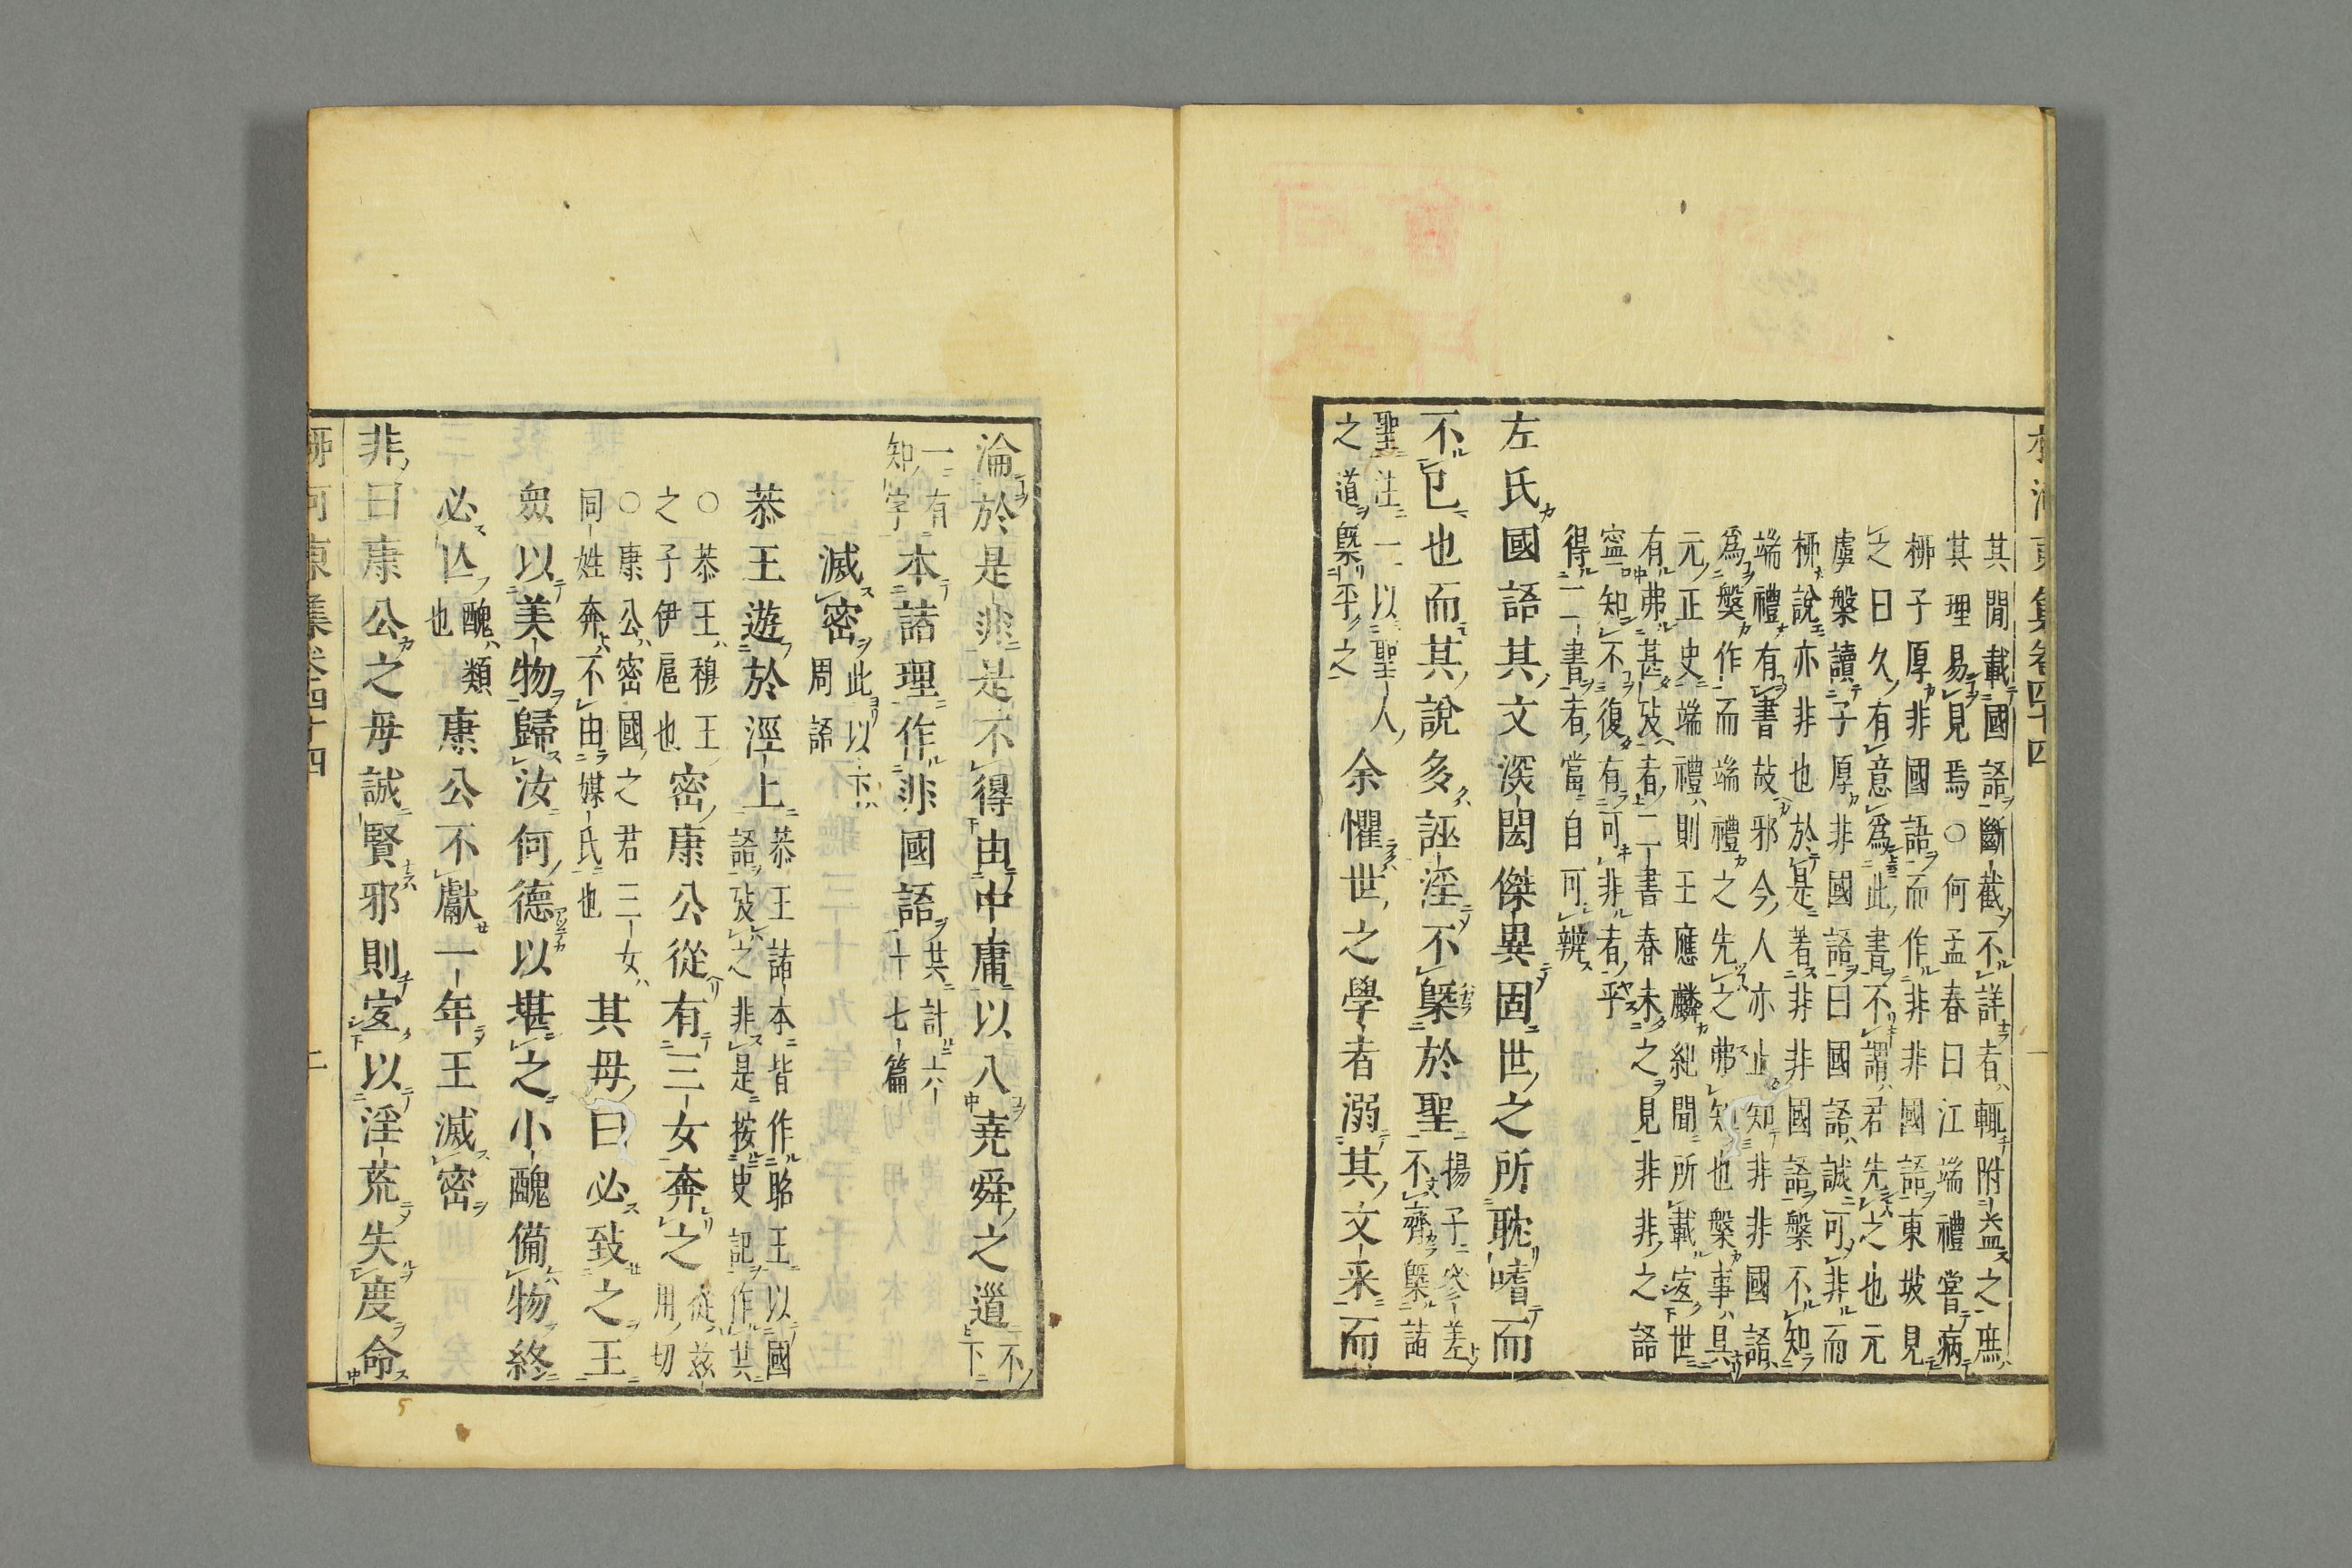 河東集卷四十四
其閒載國語斷截不詳者輒附益之庶
其理易見焉○何孟春曰江端禮嘗病
柳子厚非國語而作非非國語東坡見
之曰久有意爲此書不謂君先之也元
虞槃讀子厚非國語曰國語誠可非而
柳說亦非也於是著非非國語槃不知
端禮有書故邪今人亦止知非非國語
爲槃作而端禮之先之弗知也槃事具
元正史端禮則王應麟紀聞所載㝎世
有弗甚攷者一一書春未之見非非之語
寧知不復有可非者乎
得一一書者當自可辨
左氏國語其文深閎傑異固世之所耽嗜而
不已也而其說多誣淫不槩於聖揚子參差不齊槩諸
聖注一以聖人
之道槩乎之余懼世之學者溺其文采而
淪於是非是不得由中庸以入堯舜之道不下
一有
知字本諸理作非國語共計六
十七篇
滅密此以下
周語
恭王遊於涇上恭王諸本皆作昭王以國
語攷之非是按史記作其
○恭王穆王
之子伊扈也密康公從有三女奔之從兹
用切
○康公密國之君三女
同姓奔不由媒氏也其母曰必致之王
衆以美物歸汝何德以堪之小醜備物終
必亾醜類
也康公不獻一年王滅密
非曰康公之母誠賢邪則㝎以淫荒失度命
柳河東集卷四十四